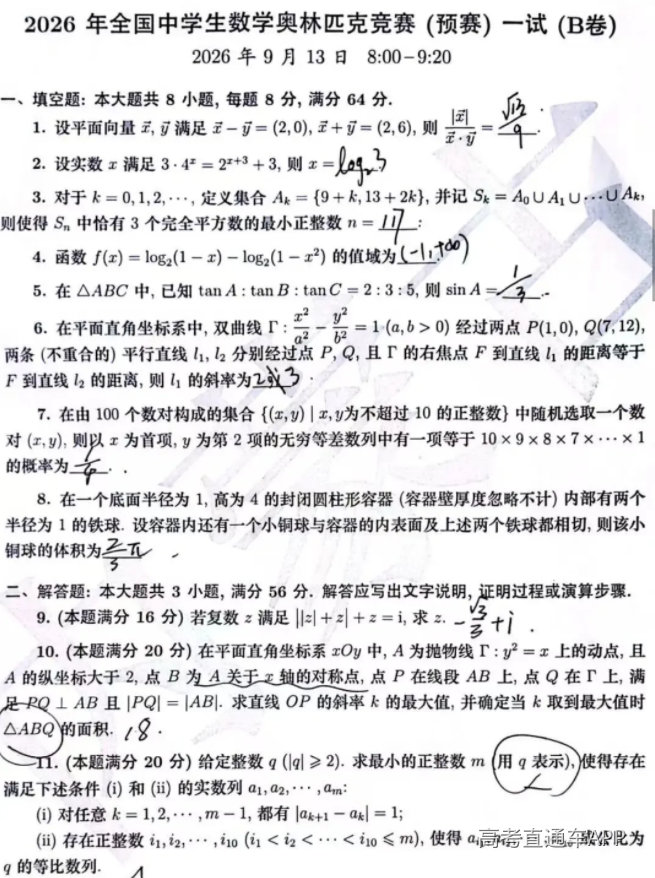 2026 年全国中学生数学奥林匹克竞赛 (预赛) 一试 (B卷)
2026 年 9 月 13 日 8:00-9:20
一、填空题: 本大题共 8 小题, 每题 8 分, 满分 64 分.
1. 设平面向量 x⃗, y⃗ 满足 x⃗ − y⃗ = (2,0), x⃗ + y⃗ = (2,6), 则 |x⃗|/(x⃗·y⃗) = √13/9 .
2. 设实数 x 满足 3·4^x = 2^(x+3) + 3, 则 x = log₂3
3. 对于 k = 0,1,2,···, 定义集合 A_k = {9 + k, 13 + 2k}, 并记 S_k = A_0 ∪ A_1 ∪ ··· ∪ A_k,
则使得 S_n 中恰有 3 个完全平方数的最小正整数 n = 117 .
4. 函数 f(x) = log₂(1 − x) − log₂(1 − x²) 的值域为 (-1,+∞)
5. 在 △ABC 中, 已知 tan A : tan B : tan C = 2 : 3 : 5, 则 sin A = /3 .
6. 在平面直角坐标系中, 双曲线 Γ : x²/a² − y²/b² = 1 (a, b > 0) 经过两点 P(1,0), Q(7,12),
两条 (不重合的) 平行直线 l₁, l₂ 分别经过点 P, Q, 且 Γ 的右焦点 F 到直线 l₁ 的距离等于
F 到直线 l₂ 的距离, 则 l₁ 的斜率为 2 3 .
7. 在由 100 个数对构成的集合 {(x, y) | x, y为不超过 10 的正整数} 中随机选取一个数
对 (x, y), 则以 x 为首项, y 为第 2 项的无穷等差数列中有一项等于 10 × 9 × 8 × 7 × ··· × 1
的概率为 .
8. 在一个底面半径为 1, 高为 4 的封闭圆柱形容器 (容器壁厚度忽略不计) 内部有两个
半径为 1 的铁球. 设容器内还有一个小铜球与容器的内表面及上述两个铁球都相切, 则该小
铜球的体积为 π .
二、解答题: 本大题共 3 小题, 满分 56 分. 解答应写出文字说明, 证明过程或演算步骤.
9. (本题满分 16 分) 若复数 z 满足 ||z| + z| + z = i, 求 z. -√3/3+i .
10. (本题满分 20 分) 在平面直角坐标系 xOy 中, A 为抛物线 Γ : y² = x 上的动点, 且
A 的纵坐标大于 2, 点 B 为 A 关于 x 轴的对称点, 点 P 在线段 AB 上, 点 Q 在 Γ 上, 满
足 PQ ⊥ AB 且 |PQ| = |AB|. 求直线 OP 的斜率 k 的最大值, 并确定当 k 取到最大值时
△ABQ 的面积. 18.
11. (本题满分 20 分) 给定整数 q (|q| ⩾ 2). 求最小的正整数 m (用 q 表示), 使得存在
满足下述条件 (i) 和 (ii) 的实数列 a₁, a₂, ···, a_m:
(i) 对任意 k = 1,2,···, m − 1, 都有 |a_(k+1) − a_k| = 1;
(ii) 存在正整数 i₁, i₂, ···, i₁₀ (i₁ < i₂ < ··· < i₁₀ ⩽ m), 使得 比为
q 的等比数列.
高考直通车APP